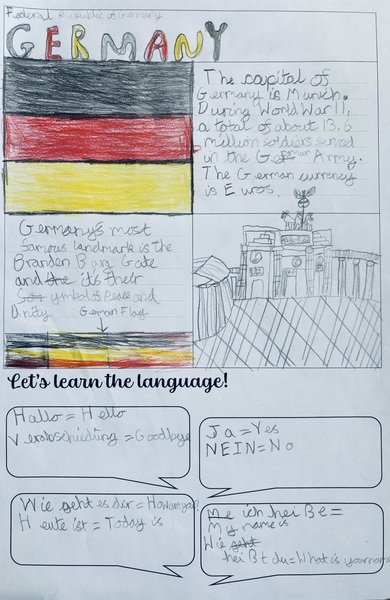 Federal Republic of Germany
GERMANY
The capital of
Germany is Munich.
During World War II,
a total of about 13.6
million soldiers served
in the German Army.
The German currency
is Euros.
Germany's most
famous landmark is the
Branden Burg Gate
and it's their
symbol of Peace and
Unity
German Flag
Let's learn the language!
Hallo = Hello
Verabschieding = Goodbye
Ja = Yes
NEIN = No
Wie geht es dir = How are you?
Heute ist = Today is
Me ich heißt =
My name is
Wie
heißt du = What is your name